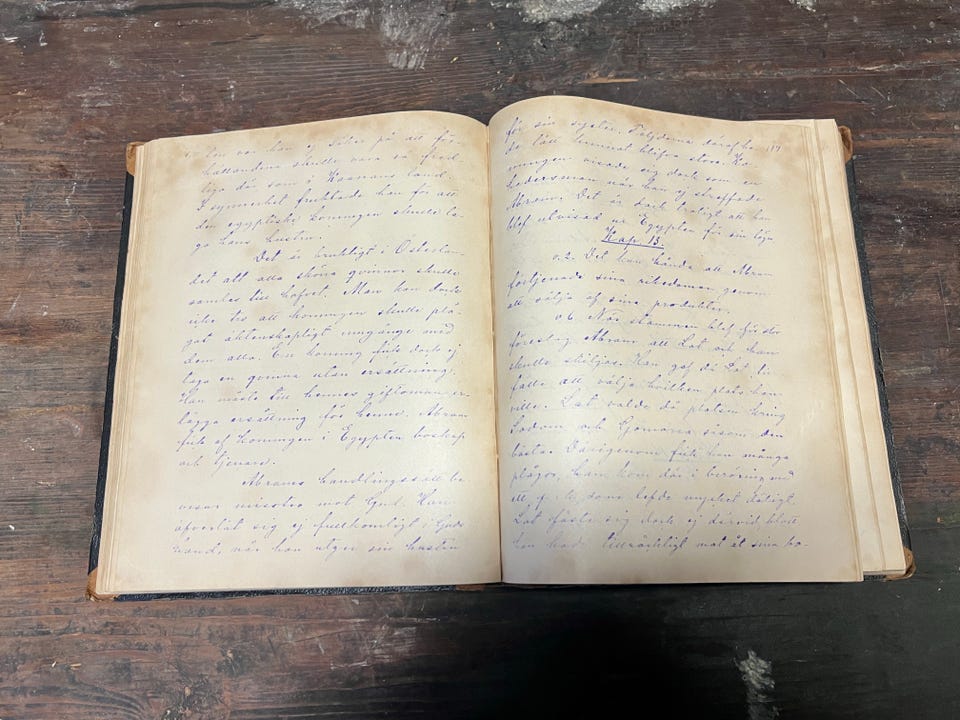 ten var han ej säker på att för-
hållandena skulle vara så fred-
liga där som i Kanaans land.
I synnerhet fruktade han för att
den egyptiske konungen skulle ta-
ga hans hustru.
Det är brukligt i Österlan-
det att alla sköna qvinnor skulle
samlas till hofvet. Man kan dock
icke tro att konungen skulle plä-
gat äktenskapligt umgänge med
dem alla. En konung fick dock ej
taga en qvinna utan ersättning.
Han måste till hennes giftoman er-
lägga ersättning för henne. Abram
fick af konungen i Egypten boskap
och tjenare.
Abrams handlingssätt be-
visar misstro mot Gud. Han
öfverlät sig ej fullkomligt i Guds
hand, när han utger sin hustru
för sin syster. Följderna däraf ha-
de lätt kunnat blifva stora. Ko-
nungen visade sig dock som en
hedersman när han ej straffade
Abram. Det är dock troligt att han
blef utvisad ur Egypten för sin lögn
Kap 13.
v.2. Det kan hända att Abram
förtjenade sina rikedomar genom
att sälja af sina produkter.
v 6 När stammen blef för stor
föreslog Abram att Lot och han
skulle skiljas. Han gaf då Lot till-
fälle att välja hvilken plats han
ville. Lot valde då platsen kring
Sodom och Gomorra såsom den
bästa. Därigenom fick han många
plågor. han kom där i beröring med
ett som lefde mycket dåligt.
Lot fäste sig dock ej därvid, blott
han hade tillräckligt mat åt sina bo-